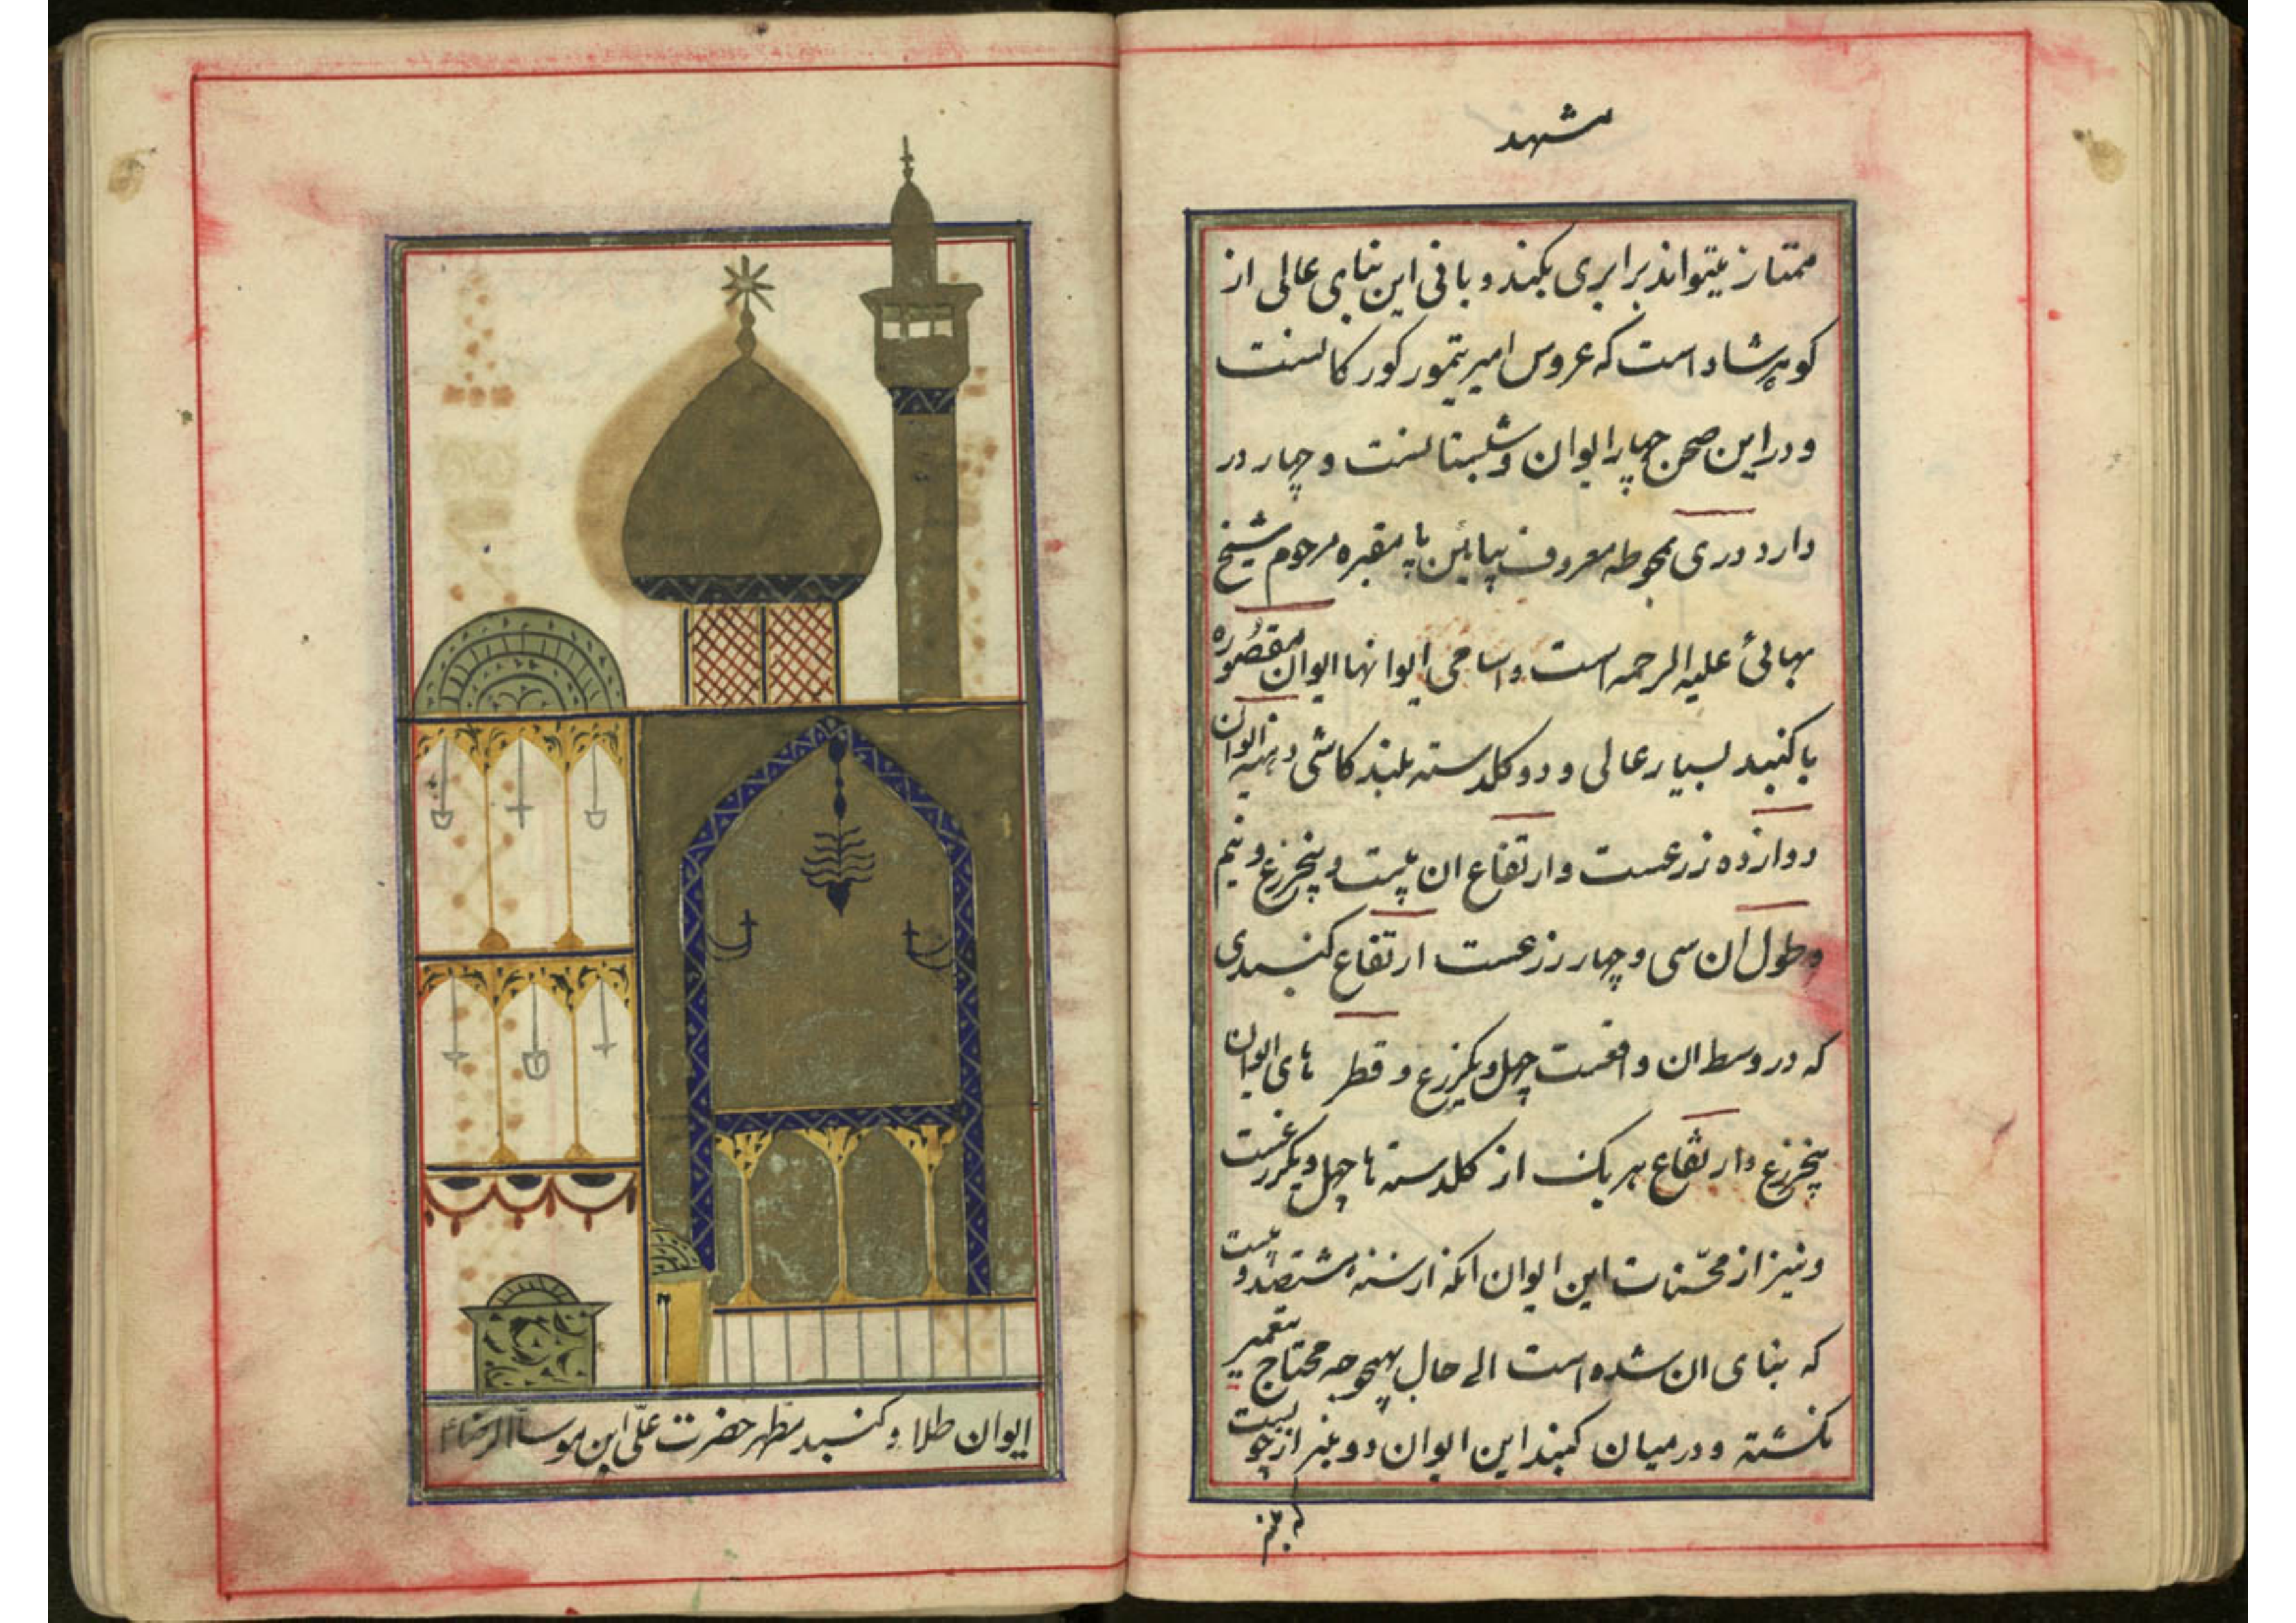 مشهد
ممتاز میتواند برابری بکند و بانی این بنای عالی از
کوهرشاد است که عروس امیر تیمور کورکانست
و در این صحن چهار ایوان و شبستانست و چهار در
دارد دری بمحوطه معروف بپائین پا مقبره مرحوم شیخ
بهائی علیه الرحمه است و اسامی ایوانها ایوان مقصوره
با کنبد بسیار عالی و دو کلدسته بلند کاشی دهنه ایوان
دوازده زرعست و ارتفاع ان بیست و پنجزرع و نیم
و طول ان سی و چهار زرعست ارتفاع کنبدی
که در وسط ان واقعست چهل و یکزرع و قطر پای ایوان
پنجزرع و ارتفاع هر یک از کلدسته ها چهل و یکزرعست
و نیز از محسّنات این ایوان انکه از سنه هشتصد و بیست
که بنای ان شده است الی حال بهیچوجه محتاج بتعمیر
نکشته و در میان کنبد این ایوان دو منبر از چوبست
که منبر
ایوان طلا و کنبد مطهر حضرت علّی ابن موسی الرضا ع